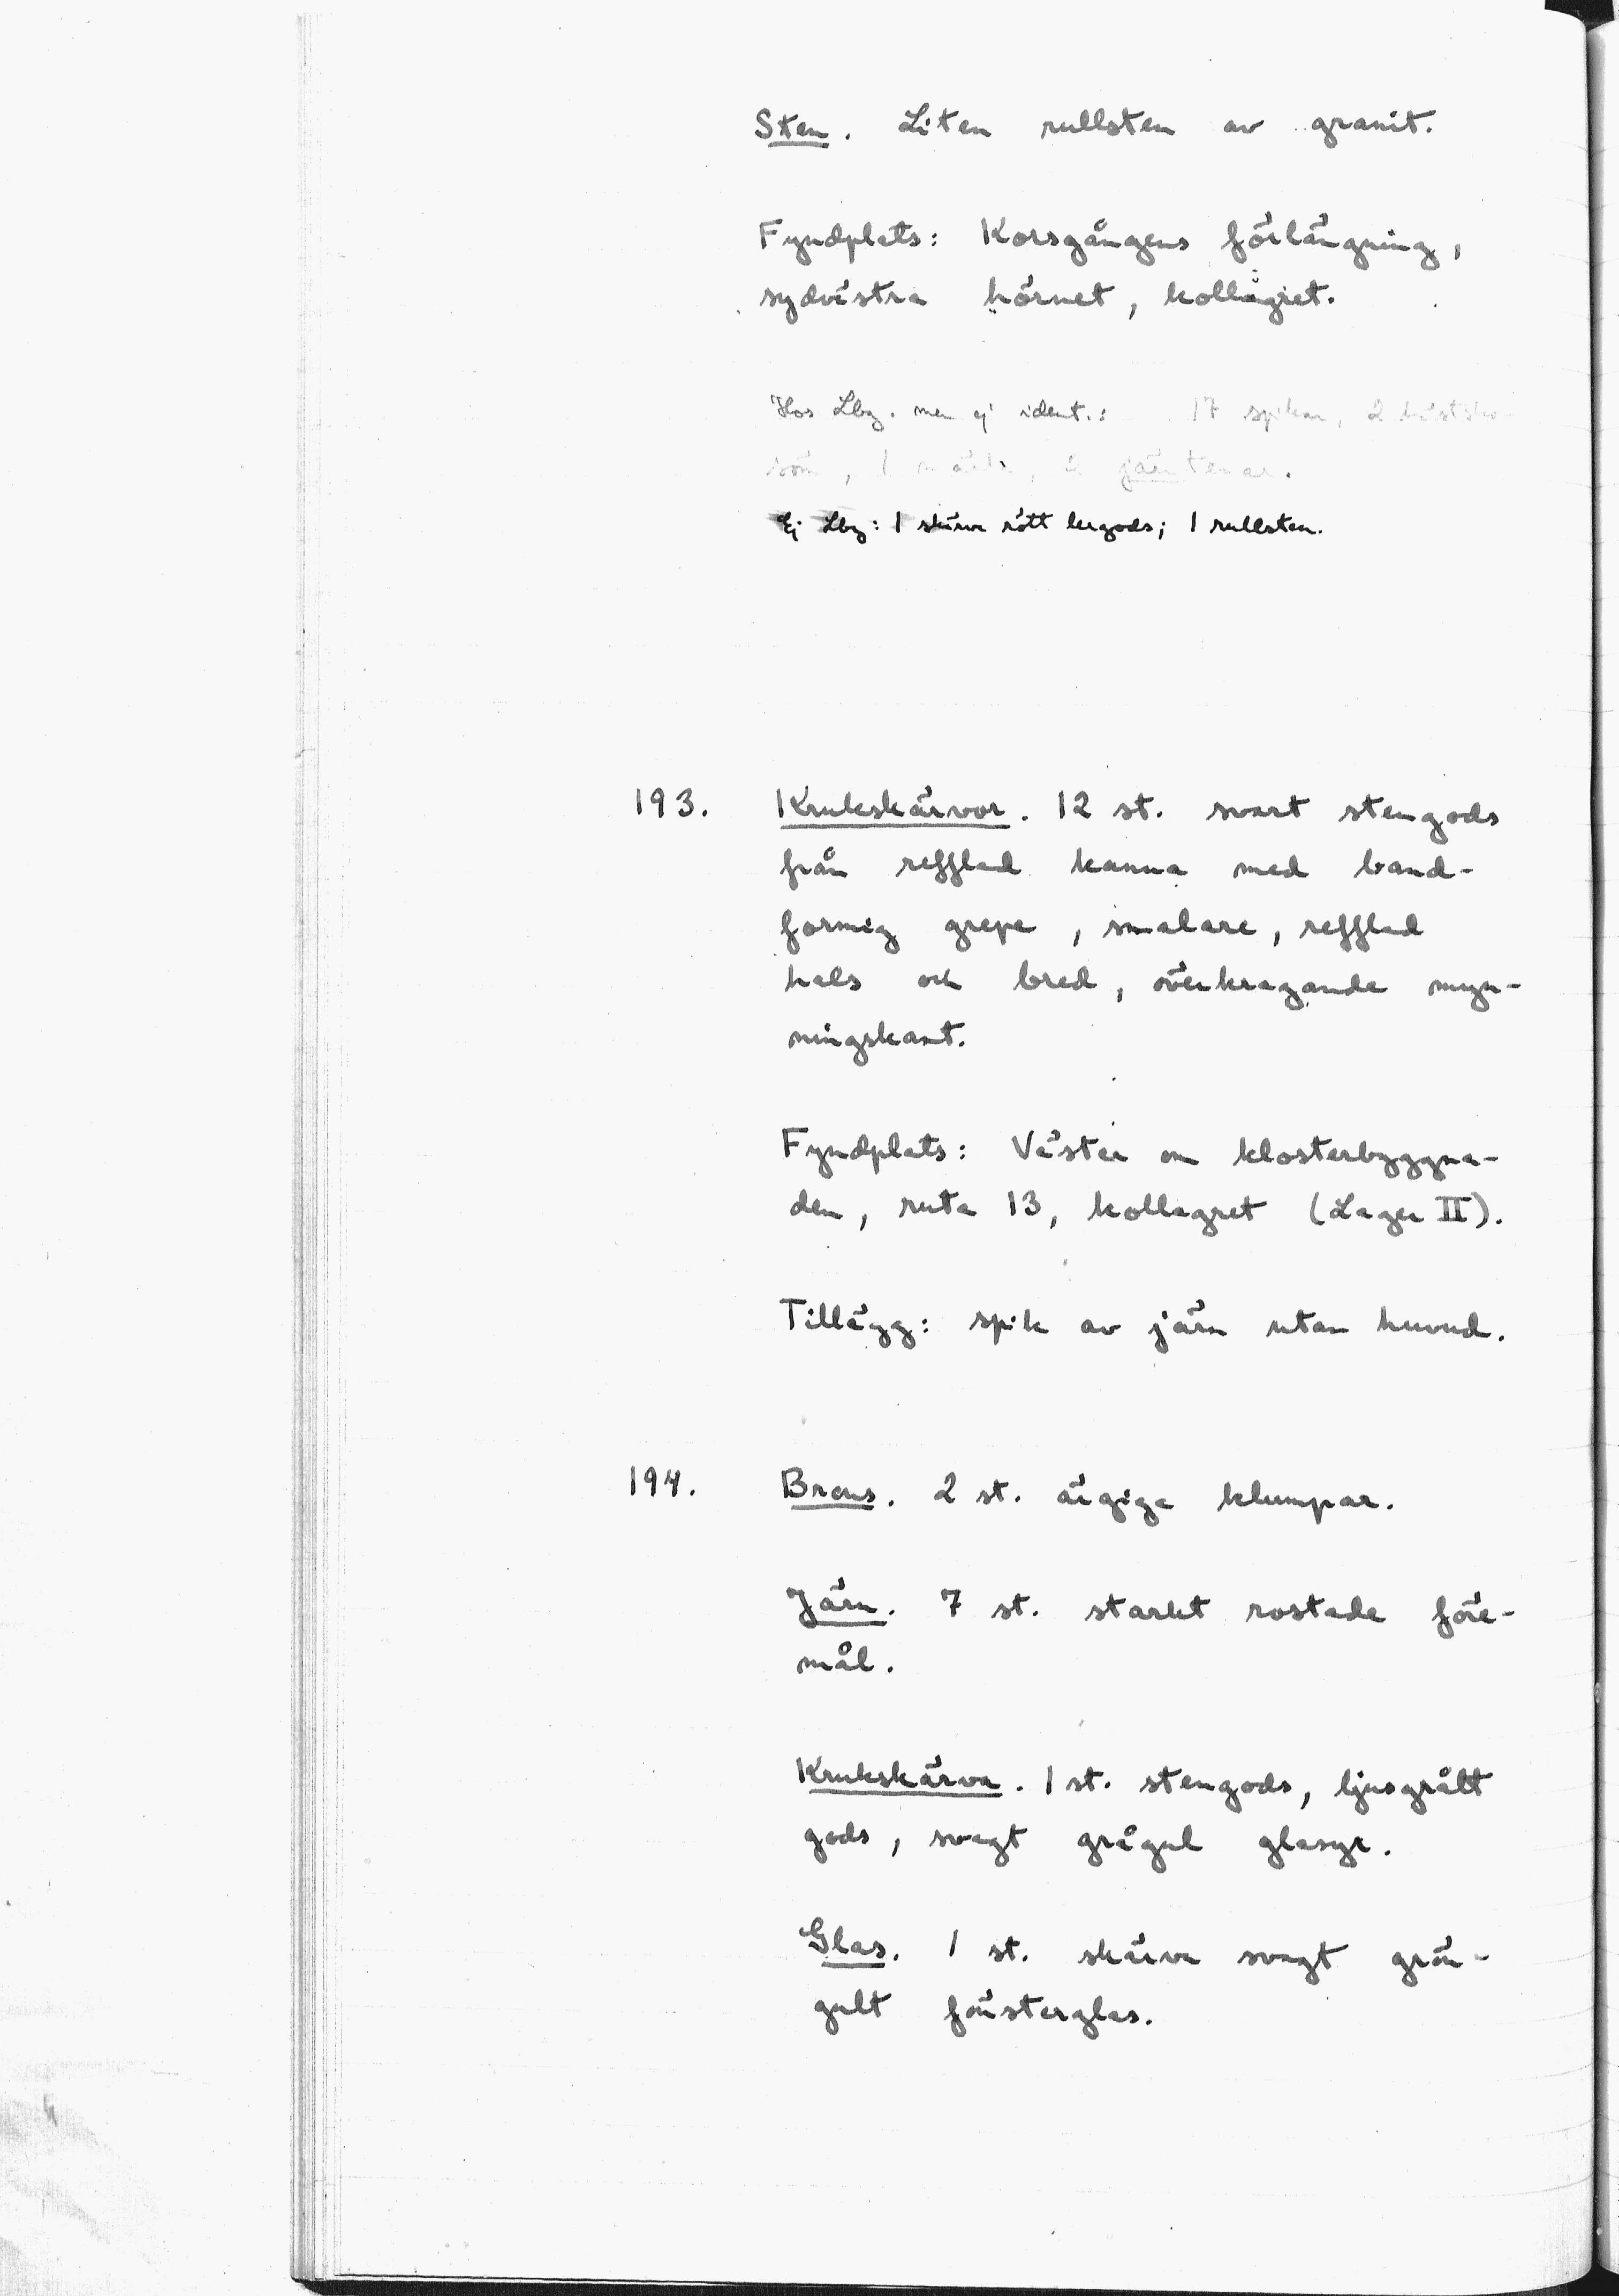 Sten. Liten rullsten av granit.
Fyndplats: Korsgångens förlängning,
sydvästra hörnet, kollagret.
Hos Lbg. men ej ident.: 17 spikar, 2 hästsko-
söm, 1 märla, 2 järntenar.
Ej Lbg: 1 skärva rött lergods; 1 rullsten.
193. Krukskärvor. 12 st. svart stengods
från refflad kanna med band-
formig grepe, smalare, refflad
hals och bred, överkragande myn-
ningskant.
Fyndplats: Väster om klosterbyggna-
den, ruta 13, kollagret (Lager II).
Tillägg: spik av järn utan huvud.
194. Brons. 2 st. ärgiga klumpar.
Järn. 7 st. starkt rostade före-
mål.
Krukskärva. 1 st. stengods, ljusgrått
gods, svagt grågul glasyr.
Glas. 1 st. skärva svagt grön-
gult fönsterglas.